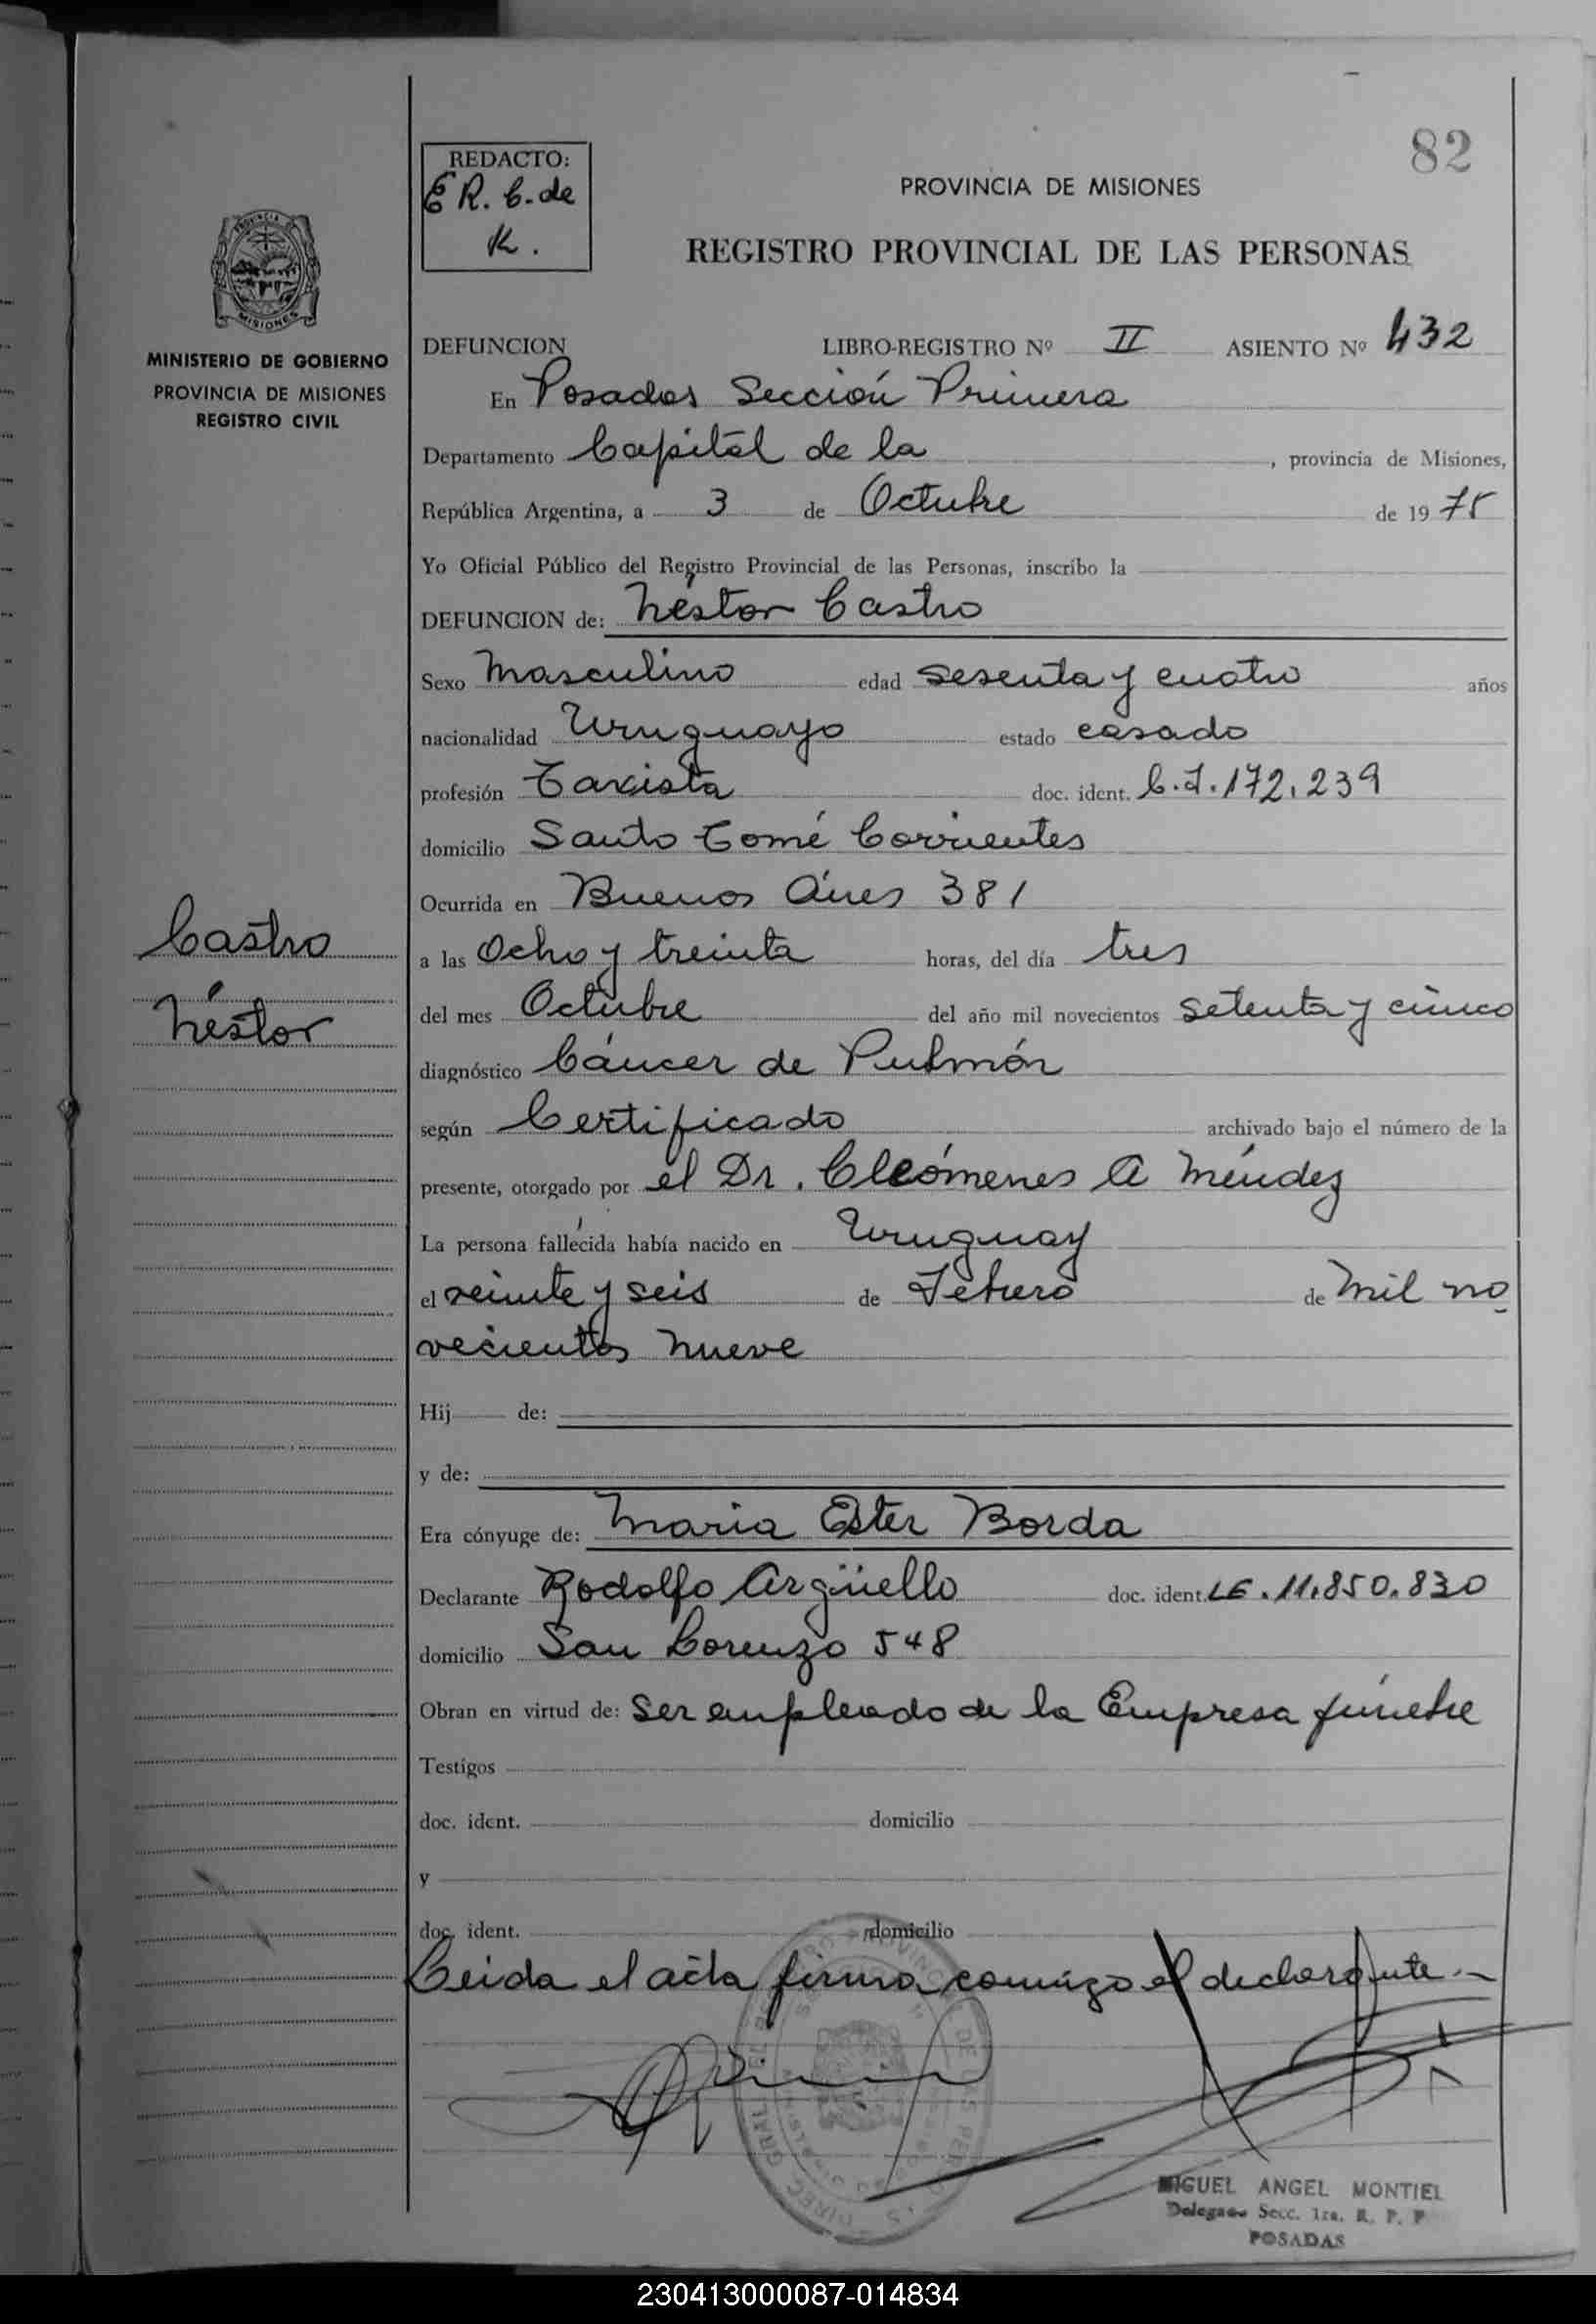 82
REDACTO:
E R. C. de
K.
PROVINCIA DE MISIONES
REGISTRO PROVINCIAL DE LAS PERSONAS
PROVINCIA
MISIONES
MINISTERIO DE GOBIERNO
PROVINCIA DE MISIONES
REGISTRO CIVIL
DEFUNCION LIBRO-REGISTRO Nº II ASIENTO Nº 432
En Posadas Sección Primera
Departamento Capital de la , provincia de Misiones,
República Argentina, a 3 de Octubre de 1975
Yo Oficial Público del Registro Provincial de las Personas, inscribo la
DEFUNCION de: Néstor Castro
Sexo Masculino edad sesenta y cuatro años
nacionalidad Uruguayo estado casado
profesión Taxista doc. ident. C.I. 172.239
domicilio Santo Tomé Corrientes
Ocurrida en Buenos Aires 381
a las Ocho y treinta horas, del día tres
del mes Octubre del año mil novecientos setenta y cinco
diagnóstico Cáncer de Pulmón
según Certificado archivado bajo el número de la
presente, otorgado por el Dr. Cleómenes A Méndez
La persona fallecida había nacido en Uruguay
el veinte y seis de Febrero de mil no
vecientos nueve
Hij de:
y de:
Era cónyuge de: Maria Ester Borda
Declarante Rodolfo Argüello doc. ident. LE. 11.850.830
domicilio San Lorenzo 548
Obran en virtud de: Ser empleado de la Empresa fúnebre
Testigos
doc. ident. domicilio
y
doc. ident. domicilio
Leida el acta firma conmigo el declarante.-
Castro
Néstor
MIGUEL ANGEL MONTIEL
Delegado Secc. 1ra. R. P. P
POSADAS
230413000087-014834